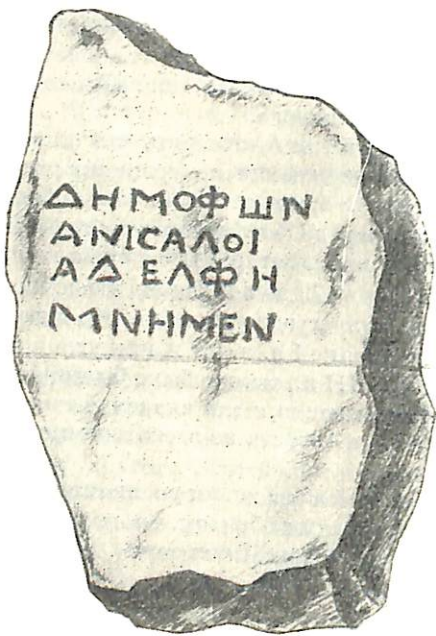 ΔΗΜΟΦΩΝ
ΑΝΙCΑΛΟΙ
ΑΔΕΛΦΗ
ΜΝΗΜΕΝ